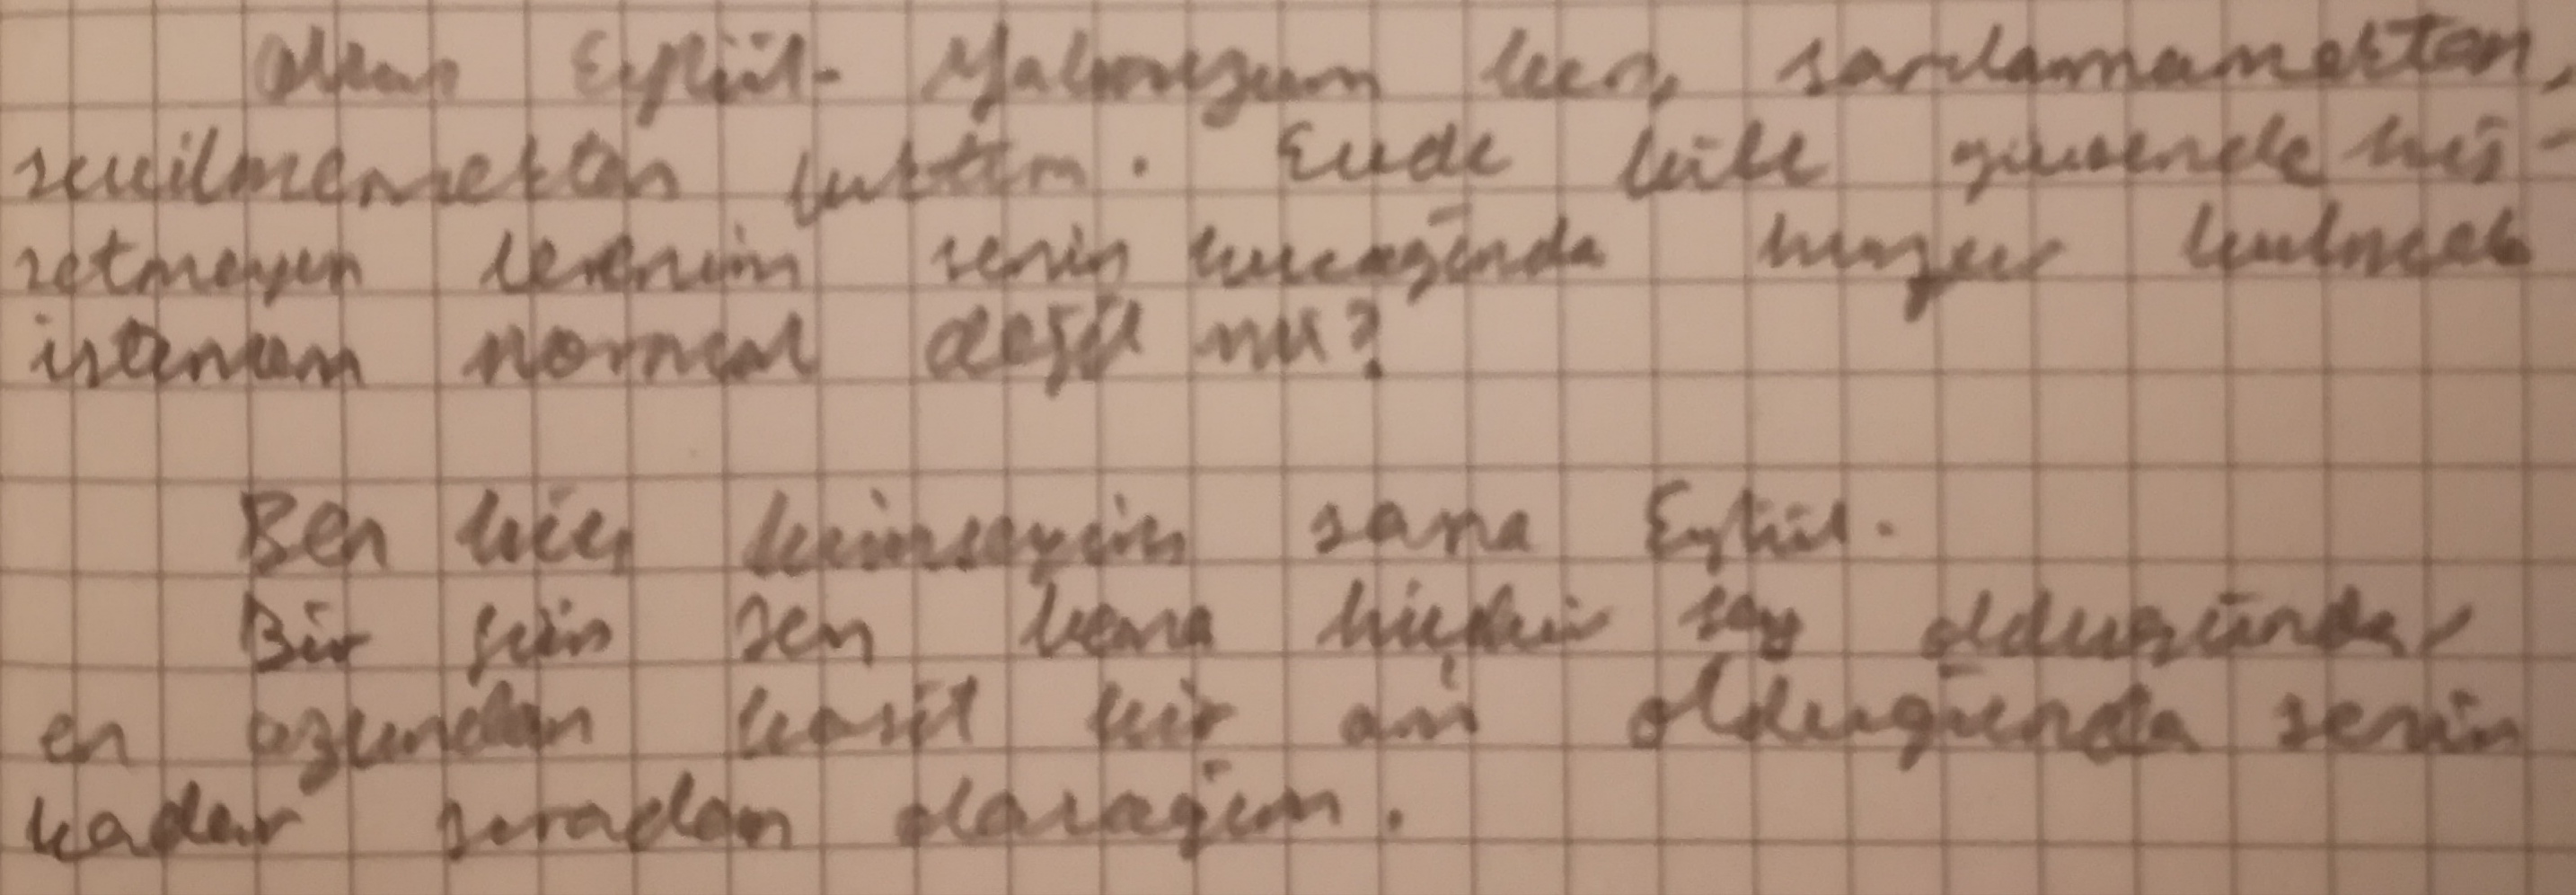 Eylül. Yalnızım ben, sarılamamaktan,
sevilmemekten bıktım. Evde bile güvende his-
setmeyen benim senin kucağında huzur bulmak
istemem normal değil mi?
Ben hiç kimseyim sana Eylül.
Bir gün sen bana hiçbir şey olduğunda,
en azından basit bir anı olduğunda senin
kadar sıradan olacağım.